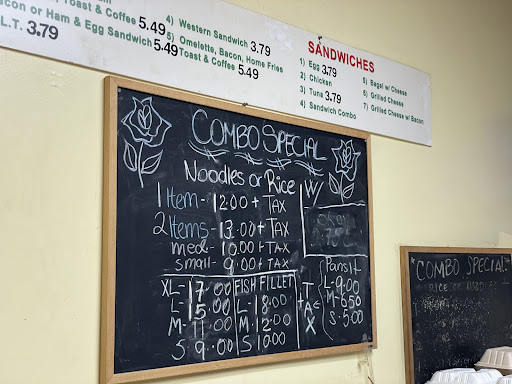 Toast & Coffee 5.49
Bacon or Ham & Egg Sandwich 5.49
L.T. 3.79
4) Western Sandwich 3.79
5) Omelette, Bacon, Home Fries
Toast & Coffee 5.49
SANDWICHES
1) Egg 3.79
2) Chicken
3) Tuna 3.79
4) Sandwich Combo
5) Bagel w/ Cheese
6) Grilled Cheese
7) Grilled Cheese w/ Bacon
COMBO SPECIAL
Noodles or Rice W/
1 Item - 12.00 + TAX
2 Items - 13.00 + TAX
med - 10.00 + TAX
small - 9.00 + TAX
XL - 17.00
L - 15.00
M - 11.00
S 9.00
FISH FILLET
L - 18.00
M - 12.00
S 10.00
TAX
Pansit
L - 9.00
M - 6.50
S - 5.00
"COMBO SPECIAL"
RICE OR NOODLES